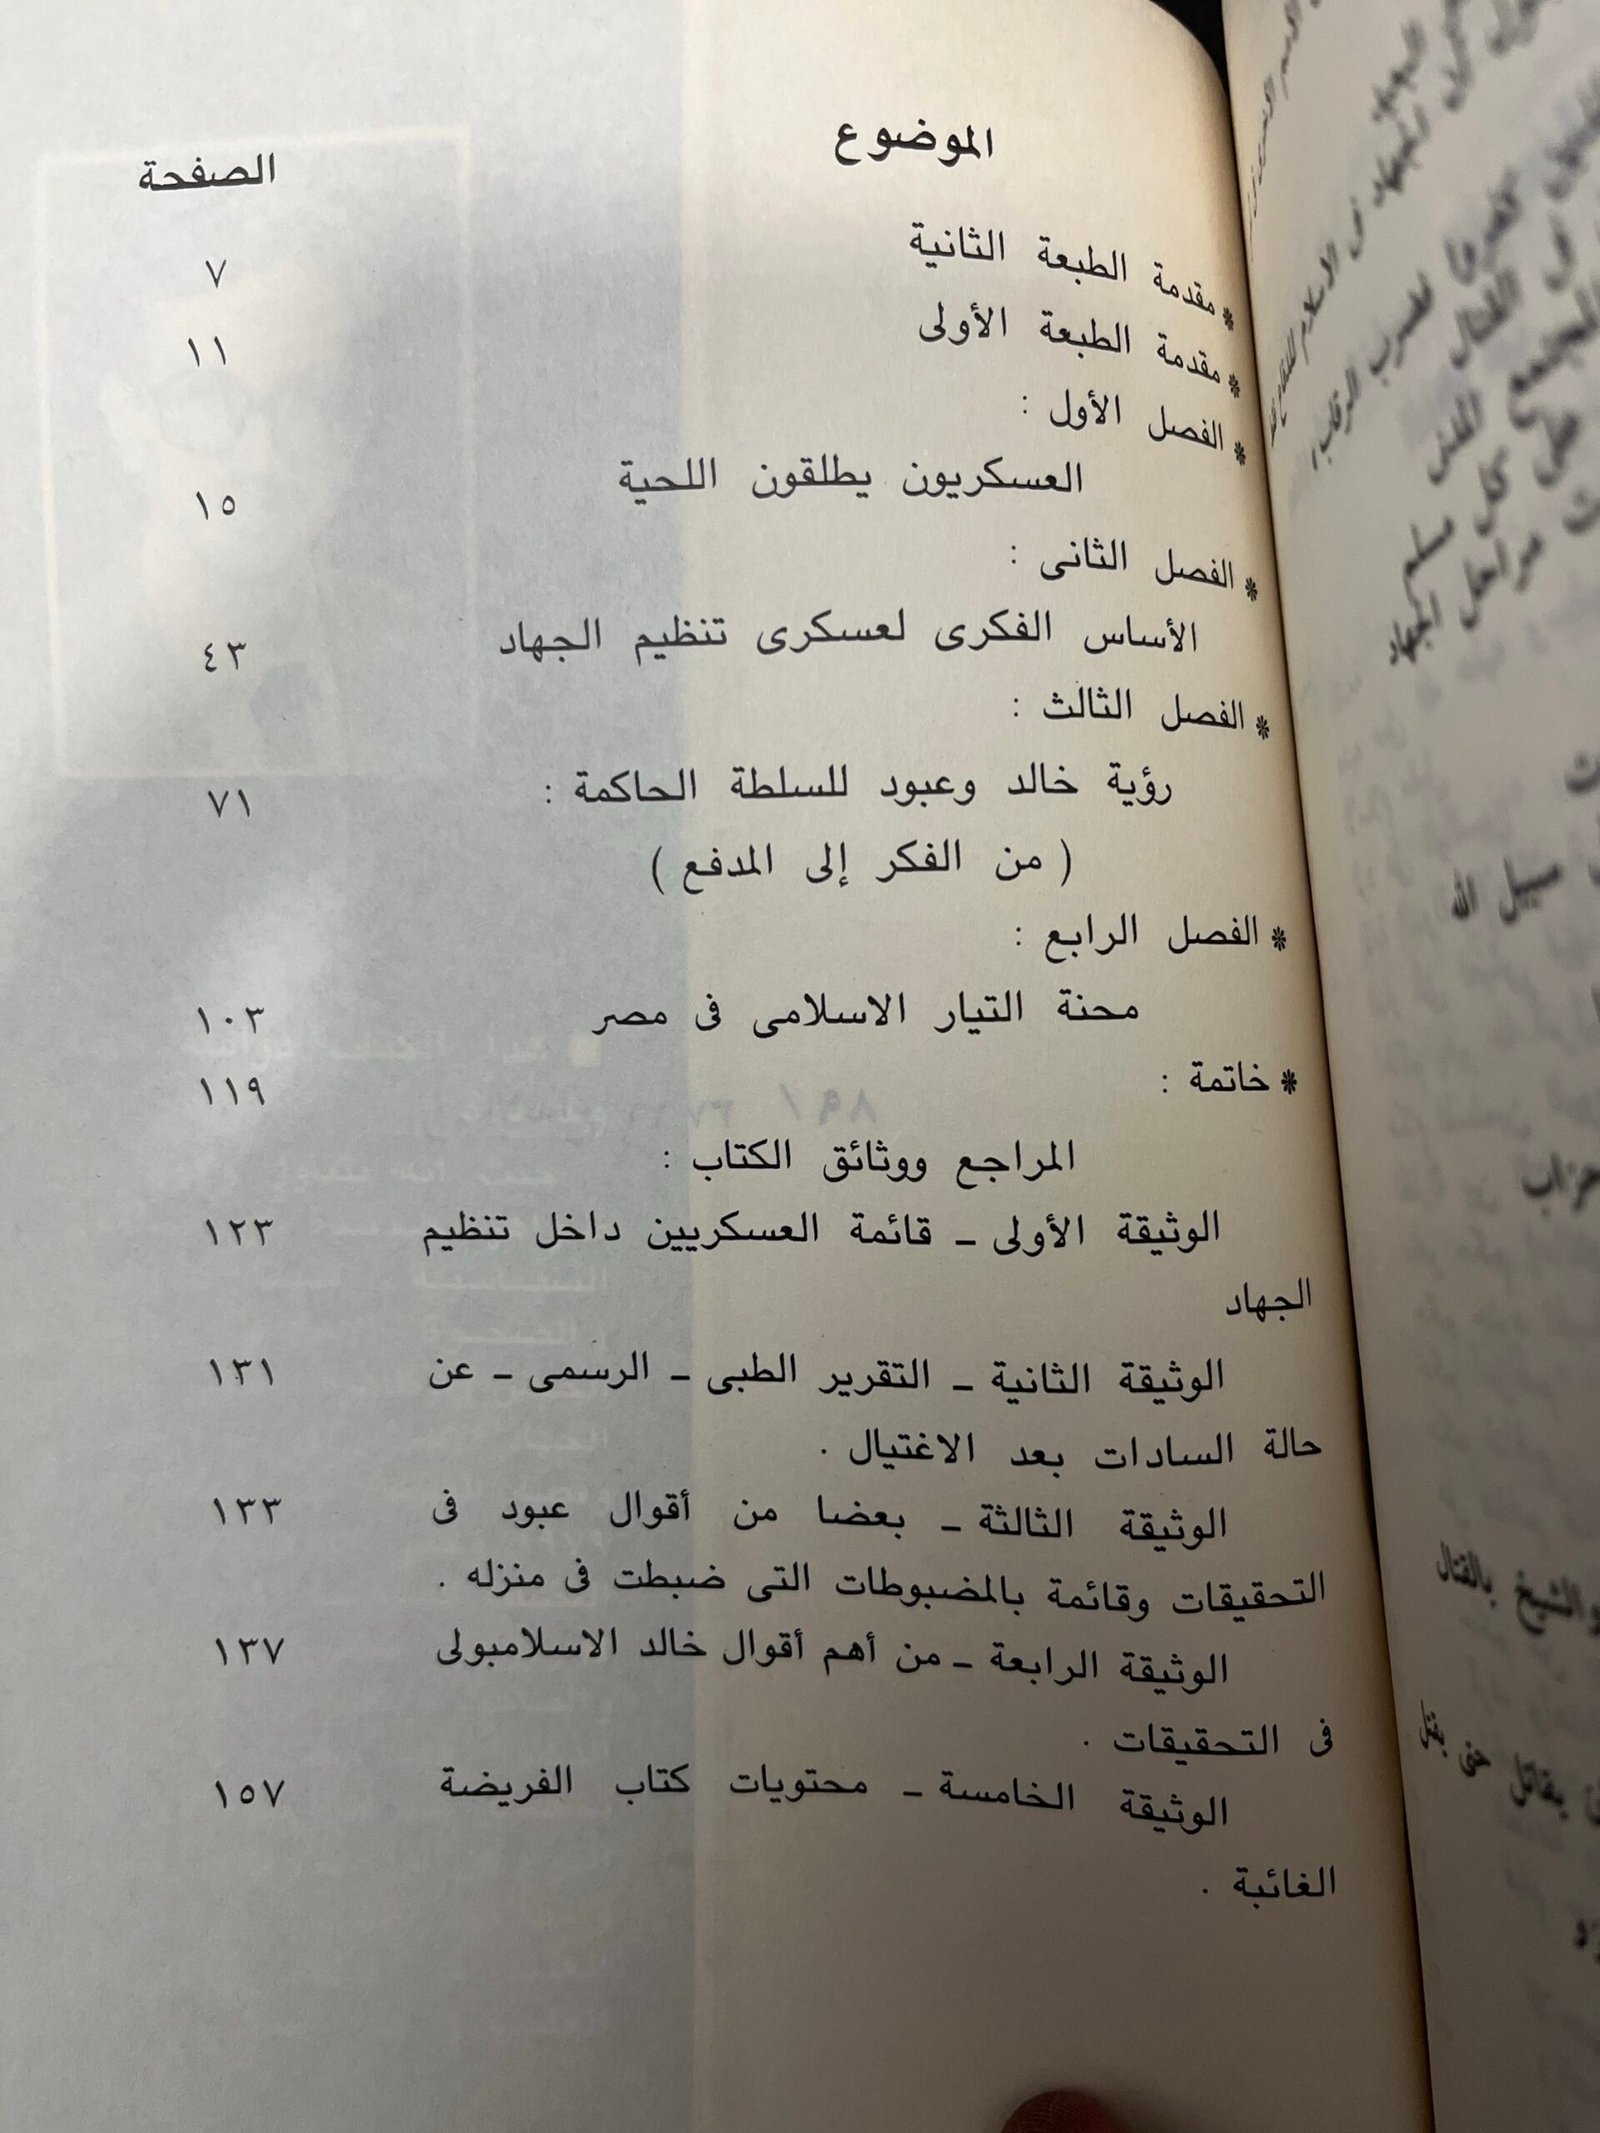 الموضوع الصفحة
* مقدمة الطبعة الثانية ٧
* مقدمة الطبعة الأولى ١١
* الفصل الأول :
العسكريون يطلقون اللحية ١٥
* الفصل الثانى :
الأساس الفكرى لعسكرى تنظيم الجهاد ٤٣
* الفصل الثالث :
رؤية خالد وعبود للسلطة الحاكمة : ٧١
( من الفكر إلى المدفع )
* الفصل الرابع :
محنة التيار الاسلامى فى مصر ١٠٣
* خاتمة : ١١٩
المراجع ووثائق الكتاب :
الوثيقة الأولى - قائمة العسكريين داخل تنظيم ١٢٣
الجهاد
الوثيقة الثانية - التقرير الطبى - الرسمى - عن ١٣١
حالة السادات بعد الاغتيال .
الوثيقة الثالثة - بعضا من أقوال عبود فى ١٣٣
التحقيقات وقائمة بالمضبوطات التى ضبطت فى منزله .
الوثيقة الرابعة - من أهم أقوال خالد الاسلامبولى ١٣٧
فى التحقيقات .
الوثيقة الخامسة - محتويات كتاب الفريضة ١٥٧
الغائبة .
كل مسلم
مراحل الجهاد
سبيل الله
والشيخ بالقتال